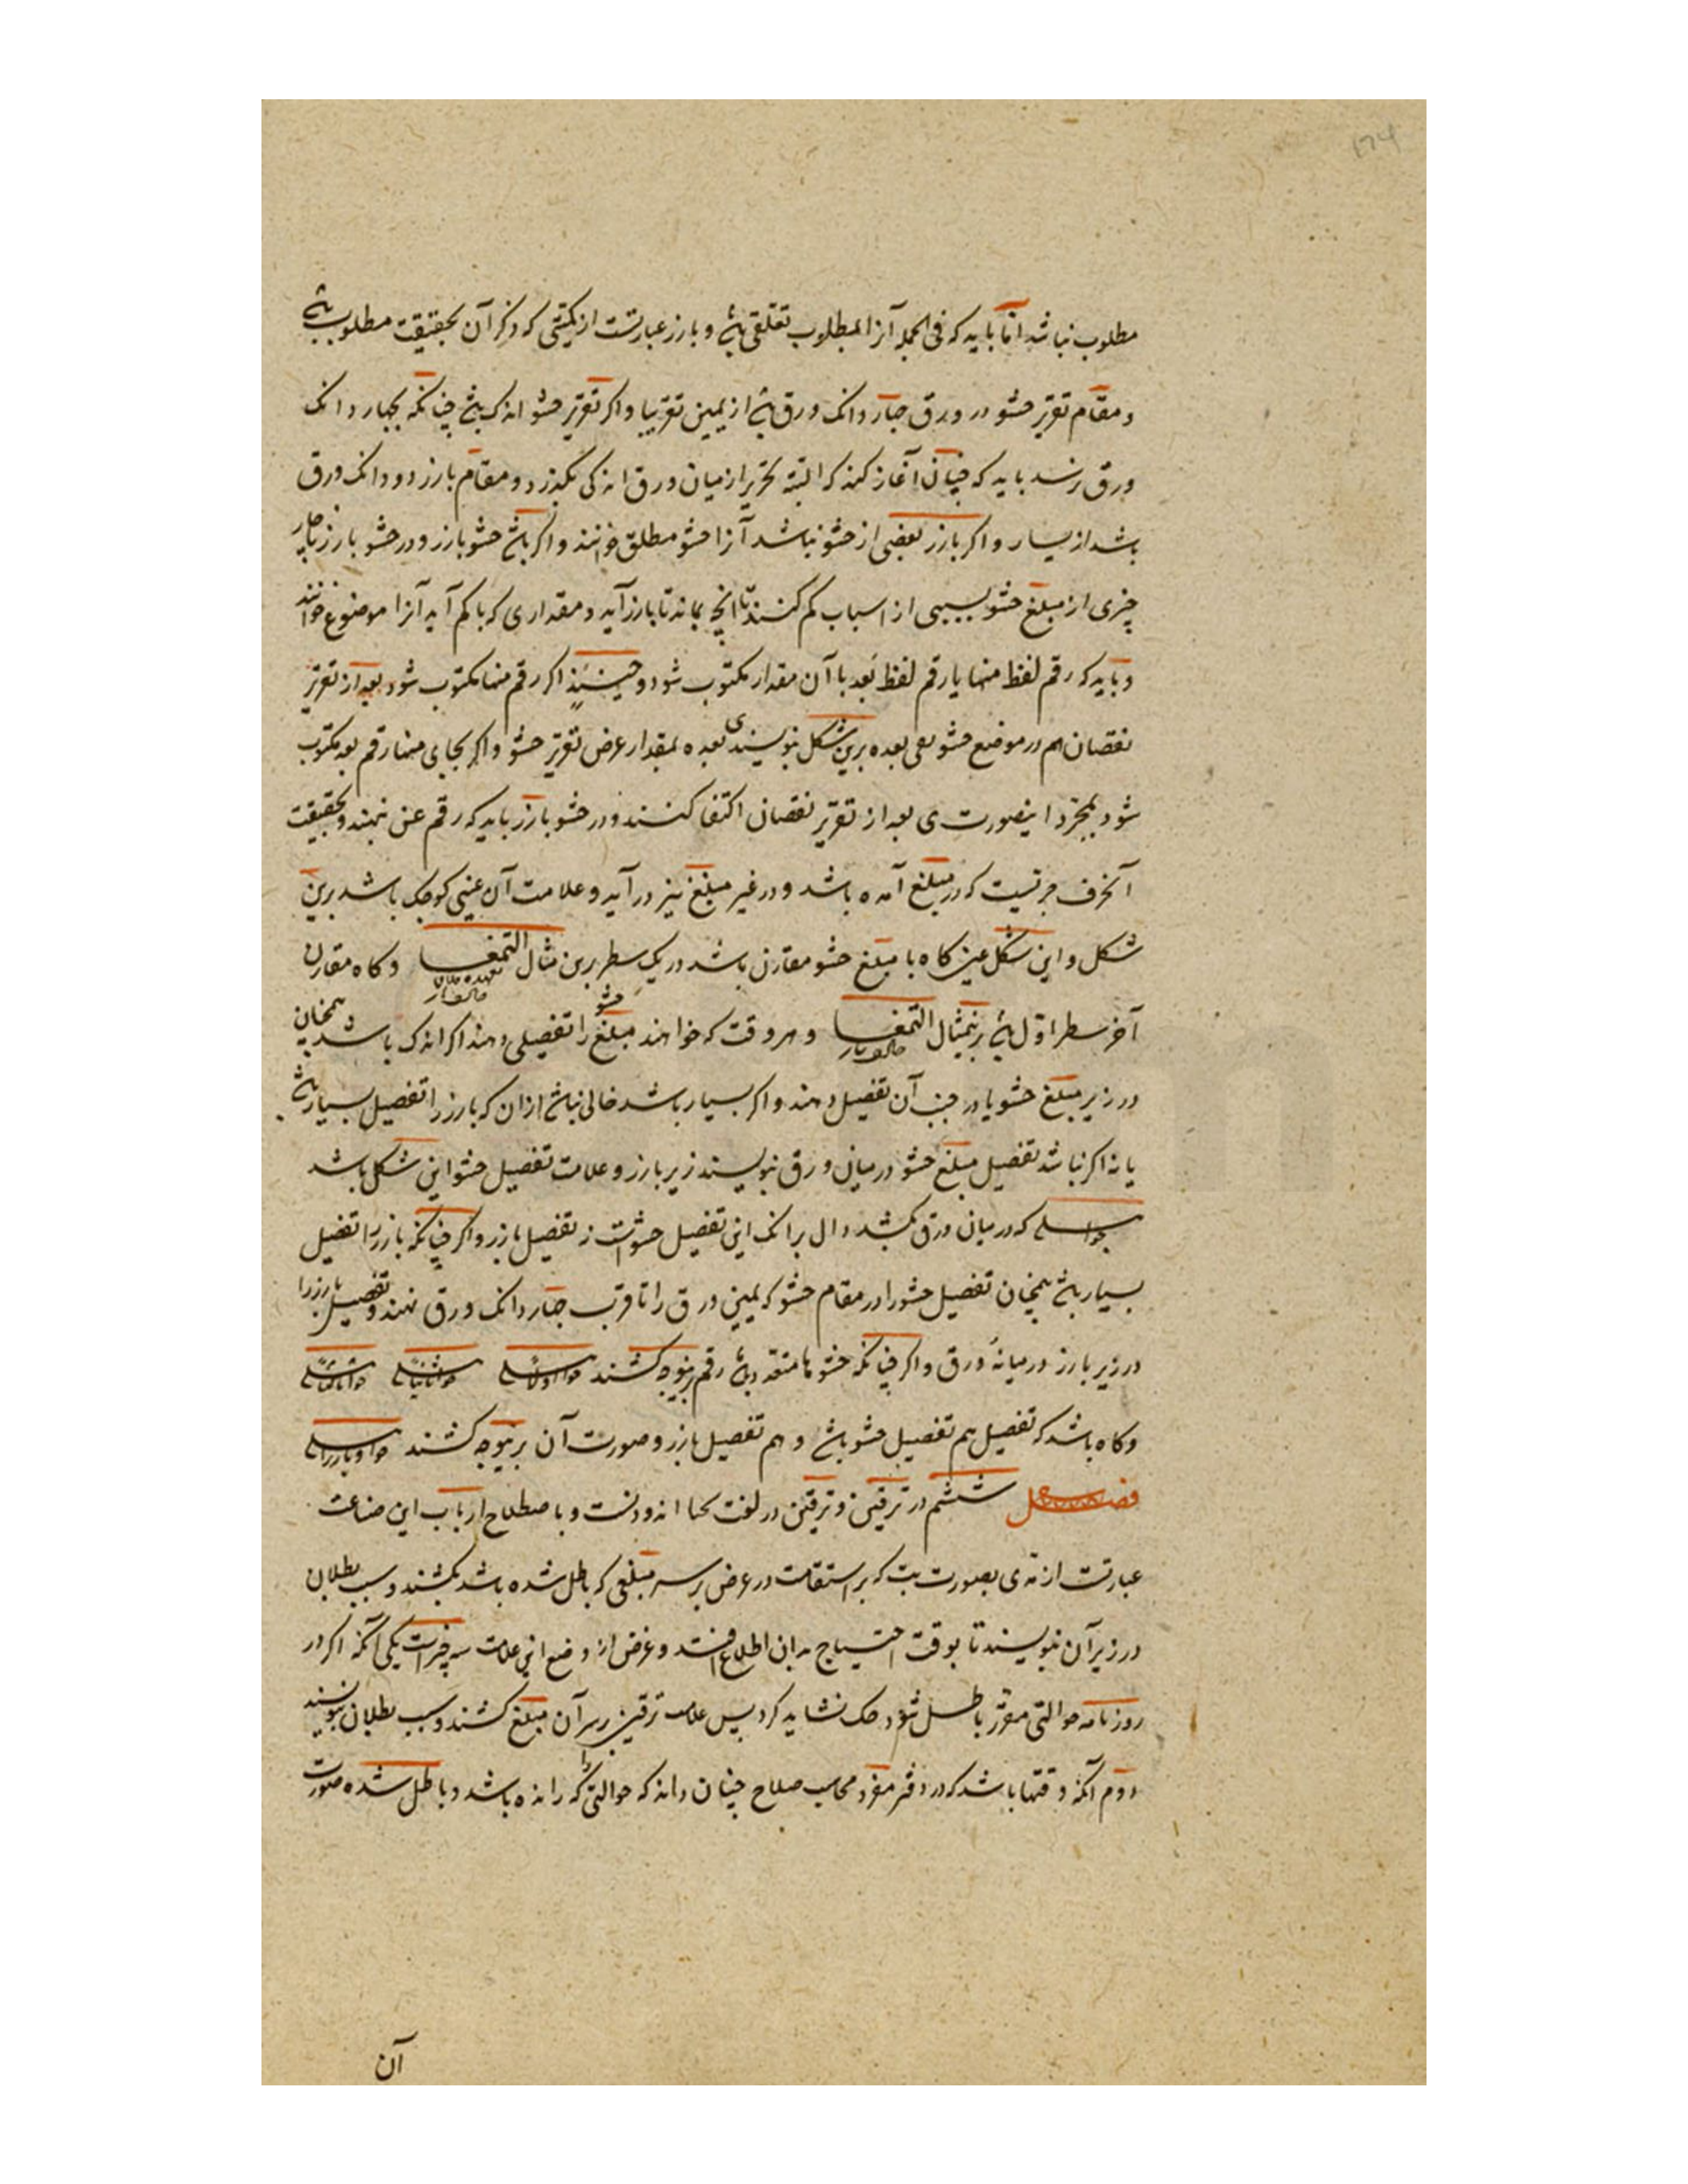 مطلوب نباشد اما باید که فی الجمله آنرا بمطلوب تعلقی باشد و بارز عبارتست از کمیتی که ذکر آن بحقیقت مطلوب باشد
و مقام تقریر حشو در ورق چهار دانک ورق باشد از یمین تقریبا و اکر تقریر حشو اندک باشد چنانکه بچهار دانک
ورق نرسد باید که چنان آغاز کنند که البته تحریر از میان ورق اندکی بگذرد و مقام بارز دو دانک ورق
باشد از یسار و اکر بارز بعضی از حشو نباشد آنرا حشو مطلق خوانند و اکر باشد حشو بارز و در حشو بارز ناچار
چیزی از مبلغ حشو بسببی از اسباب کم کنند تا آنچ بماند تا بارز آید و مقداری که با کم آید آنرا موضوع خوانند
و باید که رقم لفظ منها یا رقم لفظ بعد با آن مقدار مکتوب شود و حینئذٍ اکر رقم منها مکتوب شود بعد از تقریر
نقصان هم در موضع حشو بقی بعده برین شکل بنویسند ی بعده بمقدار عرض تقریر حشو و اکر بجای منها رقم بعد مکتوب
شود بمجرد اینصورت ی بعد از تقریر نقصان اکتفا کنند و در حشو بارز باید که رقم عن نهند و بحقیقت
آنحرف جرتیست که در مبلغ آمده باشد و در غیر مبلغ نیز درآید و علامت آن عینی کوچک باشد برین
شکل و این شکل عین کاه با مبلغ حشو مقارن باشد در یک سطر برین مثال التمغا وکاه مقارن
آخر سطر اول باشد برینمثال التمغا و هر وقت که خواهند مبلغ حشو را تفصیلی دهند اکر اندک باشد همچنان
در زیر مبلغ حشو یا در جنب آن تفصیل دهند و اکر بسیار باشد خالی نباشد از ان که بارز را تفصیل بسیار باشد
یا نه اکر نباشد تفصیل مبلغ حشو در میان ورق بنویسند زیر بارز و علامت تفصیل حشو این شکل باشد
که در میان ورق بکشند دال برانک این تفصیل حشوست نه تفصیل بارز و اکر چنانکه بارز را تفصیل
بسیار باشد همچنان تفصیل حشو را در مقام حشو که یمین ورق را تا قرب چهار دانک ورق نهند و تفصیل بارز را
در زیر بارز در میانهٔ ورق و اکر چنانکه حشوها متعدد باشد رقم برینوجه کشند
وکاه باشد که تفصیل هم تفصیل حشو باشد و هم تفصیل بارز و صورت آن برینوجه کشند
فصل ششم در ترقین و ترقین در لغت حنا اندودنست و باصطلاح ارباب این صناعت
عبارتست از مدی بصورت بت که بر استقامت در عرض بر سر مبلغی که باطل شده باشد بکشند و سبب بطلان
در زیر آن بنویسند تا بوقت احتیاج بدان اطلاع افتد و غرض از وضع این علامت سه چیزاست یکی آنکه اکر در
روزنامه حوالتی مقرر باطل شود و حک نشاید کرد پس علامت ترقین بر سر آن مبلغ کشند و سبب بطلان بنویسند
دوم آنکه وقتها باشد که در دفتر مفرد محاسب صلاح چنان داند که حوالتی را که رانده باشد و باطل شده صورت
آن